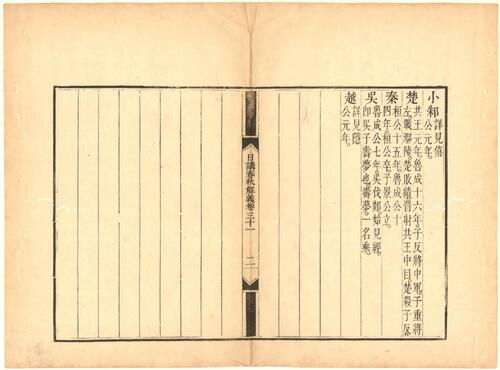 小邾詳見僖
公元年。
楚共王元年魯成十六年子反將中軍。子重將
左。戰鄢陵。楚敗績。晉射共王中目。楚殺子反。
秦桓公十五年。魯成公十
四年。桓公卒。子景公立。
吳魯成公七年。吳伐郯。始見經。
即吳子壽夢也。壽夢一名乘。
越詳見隱
公元年。
日講春秋解義卷三十一 二